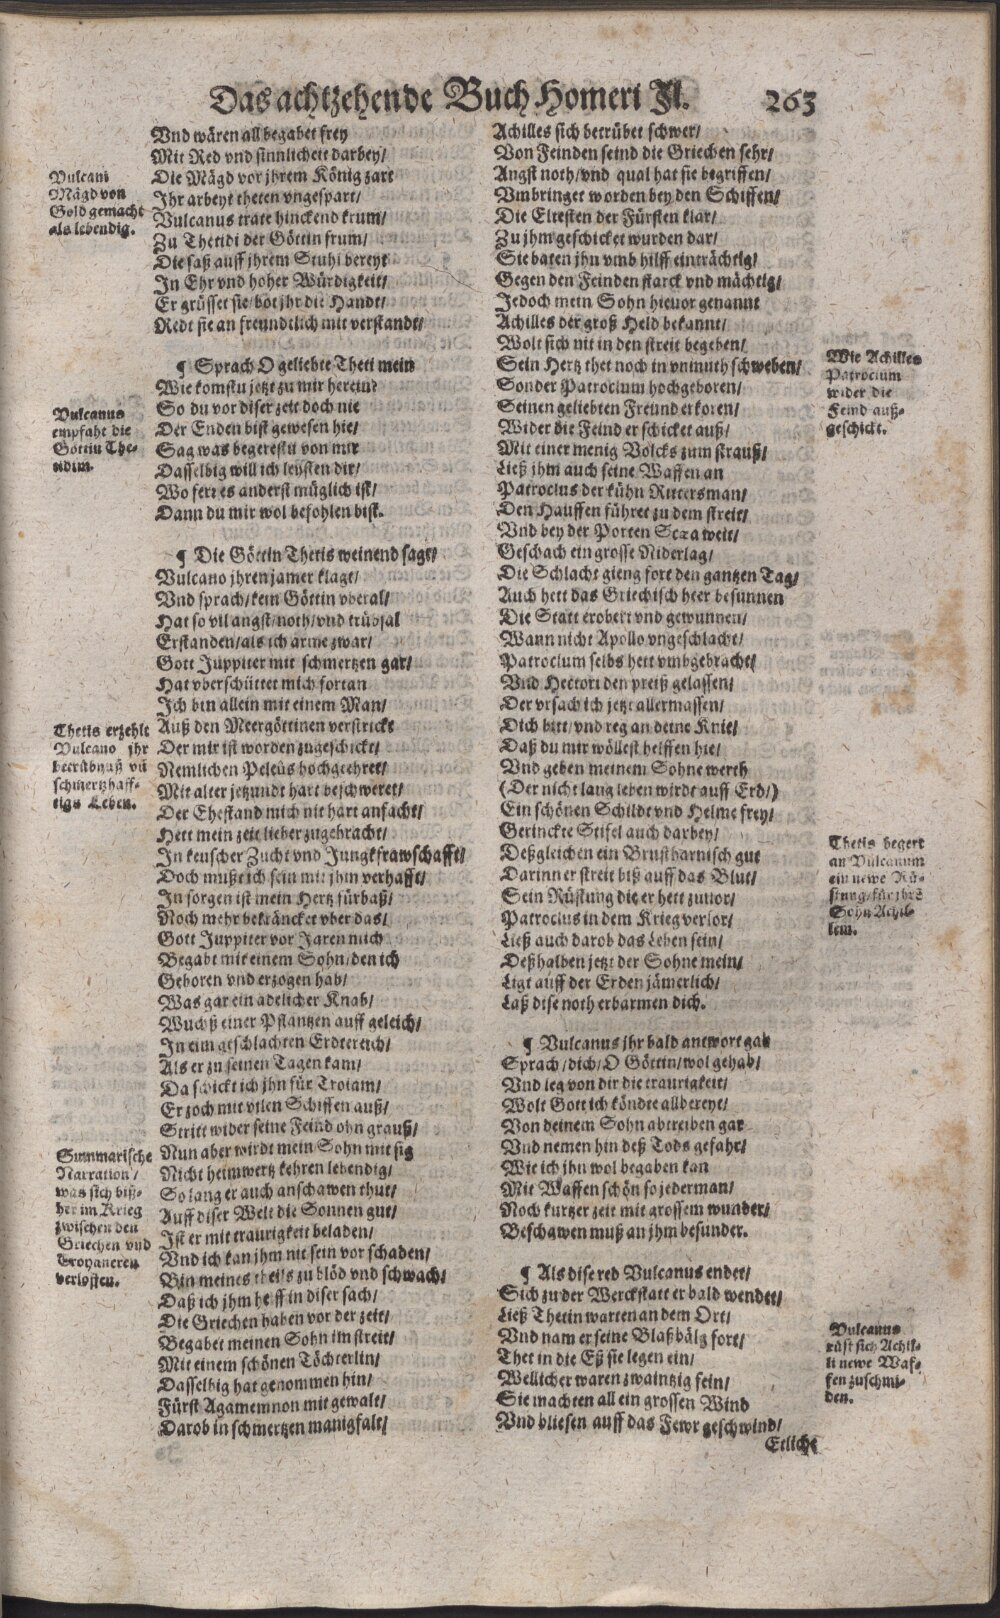 Das achtzehende Buch Homeri Jl. 263
Vnd wären all begabet frey
Mit Red vnd sinnlicheit darbey/
Die Mägd vor jhrem König zart
Ihr arbeyt theten vngespart/
Vulcanus trate hinckend krum/
Zu Thetidi der Göttin frum/
Die saß auff jhrem Stuhl bereyt
In Ehr vnd hoher Würdigkeit/
Er grüsset sie/bot jhr die Handt/
Redt sie an freundtlich mit verstandt/
Vulcani
Mägd von
Gold gemacht
als lebendig.
¶ Sprach O geliebte Theti mein
Wie komstu jetzt zu mir herein?
So du vor diser zeit doch nie
Der Enden bist gewesen hie/
Sag was begerestu von mir
Dasselbig will ich leysten dir/
Wo ferr es anderst müglich ist/
Dann du mir wol befohlen bist.
Vulcanus
empfaht die
Göttin The-
tidim.
¶ Die Göttin Thetis weinend sagt/
Vulcano jhren jamer klagt/
Vnd sprach/kein Göttin vberal/
Hat so vil angst/noth/vnd trübsal
Erstanden/als ich arme zwar/
Gott Juppiter mit schmertzen gar/
Hat vberschüttet mich fortan
Ich bin allein mit einem Man/
Auß den Meergöttinen verstrickt
Der mir ist worden zugeschickt/
Nemlichen Peleus hochgeehret/
Mit alter jetzundt hart beschweret/
Der Ehestand mich nit hart anfacht/
Hett mein zeit lieber zugebracht/
In keuscher Zucht vnd Jungkfrawschafft/
Doch mußt ich sein mit jhm verhafft/
In sorgen ist mein Hertz fürbaß/
Noch mehr bekräncket vber das/
Gott Juppiter vor Jaren mich
Begabt mit einem Sohn/den ich
Geboren vnd erzogen hab/
Was gar ein adelicher Knab/
Wuchß einer Pflantzen auff geleich/
In eim geschlachten Erdtereich/
Als er zu seinen Tagen kam/
Da schickt ich jhn für Troiam/
Er zoch mit vilen Schiffen auß/
Stritt wider seine Feind ohn grauß/
Nun aber wirdt mein Sohn mit sig
Nicht heimwertz kehren lebendig/
So lang er auch anschawen thut/
Auff diser Welt die Sonnen gut/
Ist er mit traurigkeit beladen/
Vnd ich kan jhm nit sein vor schaden/
Bin meines theils zu blöd vnd schwach/
Daß ich jhm helff in diser sach/
Die Griechen haben vor der zeit/
Begabet meinen Sohn im streit/
Mit einem schönen Töchterlin/
Dasselbig hat genommen hin/
Fürst Agamemnon mit gewalt/
Darob in schmertzen manigfalt/
Thetis erzehlt
Vulcano jhr
betrübnuß vñ
schmertzhaff-
tigs Leben.
Summarische
Narration/
was sich biß-
her im Krieg
zwischen den
Griechen vnd
Troyaneren
verloffen.
Achilles sich betrübet schwer/
Von Feinden seind die Griechen sehr/
Angst noth/vnd qual hat sie begriffen/
Vmbringet worden bey den Schiffen/
Die Eltesten der Fürsten klar/
Zu jhm geschicket wurden dar/
Sie baten jhn vmb hilff einträchtig/
Gegen den Feinden starck vnd mächtig/
Jedoch mein Sohn hieuor genannt
Achilles der groß Held bekannt/
Wolt sich nit in den streit begeben/
Sein Hertz thet noch in vnmuth schweben/
Sonder Patroclum hochgeboren/
Seinen geliebten Freund erkoren/
Wider die Feind er schicket auß/
Mit einer menig Volcks zum strauß/
Ließ jhm auch seine Waffen an
Patroclus der kühn Rittersman/
Den Hauffen führet zu dem streit/
Vnd bey der Porten Scæa weit/
Geschach ein grosse Niderlag/
Die Schlacht gieng fort den gantzen Tag/
Auch hett das Griechisch heer besunnen
Die Statt erobert vnd gewunnen/
Wann nicht Apollo vngeschlacht/
Patroclum selbs hett vmbgebracht/
Vnd Hectori den preiß gelassen/
Der vrsach ich jetzt allermassen/
Dich bitt/vnd reg an deine Knie/
Daß du mir wöllest helffen hie/
Vnd geben meinem Sohne werth
(Der nicht lang leben wirdt auff Erd/)
Ein schönen Schildt vnd Helme frey/
Gerinckte Stifel auch darbey/
Deßgleichen ein Brustharnisch gut
Darinn er streit biß auff das Blut/
Sein Rüstung die er hett zuuor/
Patroclus in dem Krieg verlor/
Ließ auch darob das Leben sein/
Deßhalben jetzt der Sohne mein/
Ligt auff der Erden jämerlich/
Laß dise noth erbarmen dich.
Wie Achilles
Patroclum
wider die
Feind auß-
geschickt.
Thetis begert
an Vulcanum
ein newe Rü-
stung/für jhrē
Sohn Achil-
lem.
¶ Vulcanus jhr bald antwort gab
Sprach/dich/O Göttin/wol gehab/
Vnd leg von dir die traurigkeit/
Wolt Gott ich köndte allbereyt/
Von deinem Sohn abtreiben gar
Vnd nemen hin deß Tods gefahr/
Wie ich jhn wol begaben kan
Mit Waffen schön so jederman/
Noch kurtzer zeit mit grossem wunder/
Beschawen muß an jhm besunder.
¶ Als dise red Vulcanus endet/
Sich zu der Werckstatt er bald wendet/
Ließ Thetin warten an dem Ort/
Vnd nam er seine Blaßbälg fort/
Thet in die Eß sie legen ein/
Wellicher waren zwaintzig sein/
Sie machten all ein grossen Wind
Vnd bliesen auff das Fewr geschwind/
Vulcanus
rüst sich Achil-
li newe Waf-
fen zuschmi-
den.
Etliche